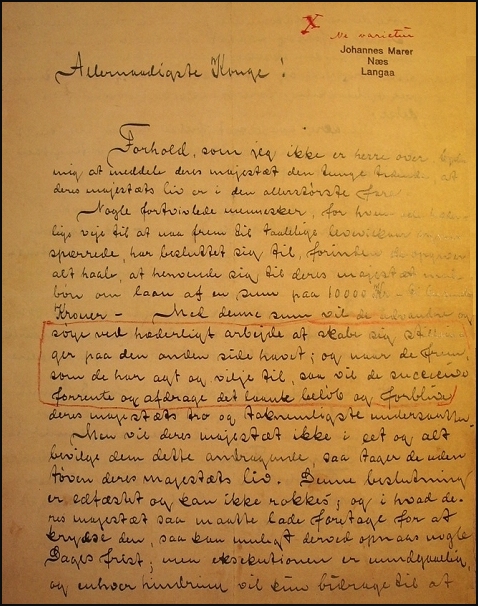 X
Ne varietur
Johannes Marer
Næs
Langaa
Allernaadigste Konge!
Forhold, som jeg ikke er herre over, byde
mig at meddele deres majestæt den tunge, at
deres majestæts liv er i den allerstørste fare.
Nogle fortvivlede mennesker, for hvem
lige veje til at naa frem til taalelige levevilkaar
spærrede, har besluttet sig til, forinden de opgiver
alt haab, at henvende sig til deres majestæt med
bøn om laan af en sum paa 10000 Kr -
Kroner - Med denne sum vil de udvandre og
søge ved hæderligt arbejde at skabe sig
ger paa den anden side havet; og naar de frem,
som de har agt og vilje til, saa vil de succesive
forrente og afdrage det laante beløb og forblive
deres majestæts tro og taknemligste undersaatter.
Men vil deres majestæt ikke i eet og alt
bevilge dem dette andragende, saa tager de uden
tøven deres majestæts liv. Denne beslutning
er edfæstet og kan ikke rokkes; og i hvad de-
res majestæt saa maatte lade foretage for at
krydse den, saa kan muligt derved opnaas nogle
Dages frist; men eksekutionen er uundgaaelig,
og enhver hindring vil kun bidrage til at